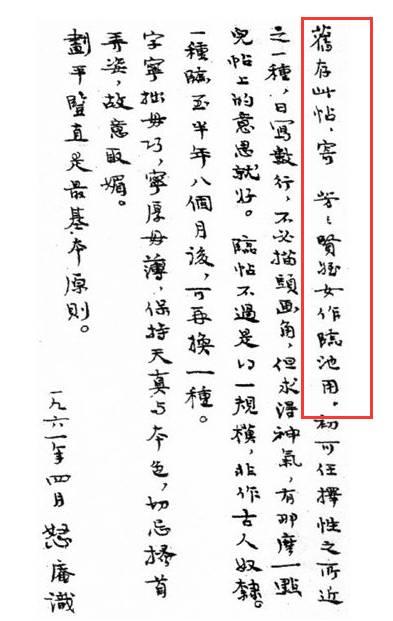 舊存此帖，寄　芳芳賢姪女作臨池用。初可任擇性之所近
之一種，日寫數行，不必描頭畫角，但求得神氣，有那麼一點
兒帖上的意思就好。臨帖不過是得一規模，非作古人奴隸。
一種臨至半年八個月後，可再換一種。
字寧拙毋巧，寧厚毋薄，保持天真与本色，切忌搔首
弄姿，故意取媚。
劃平豎直是最基本原則。
一九六一年四月　怒庵識